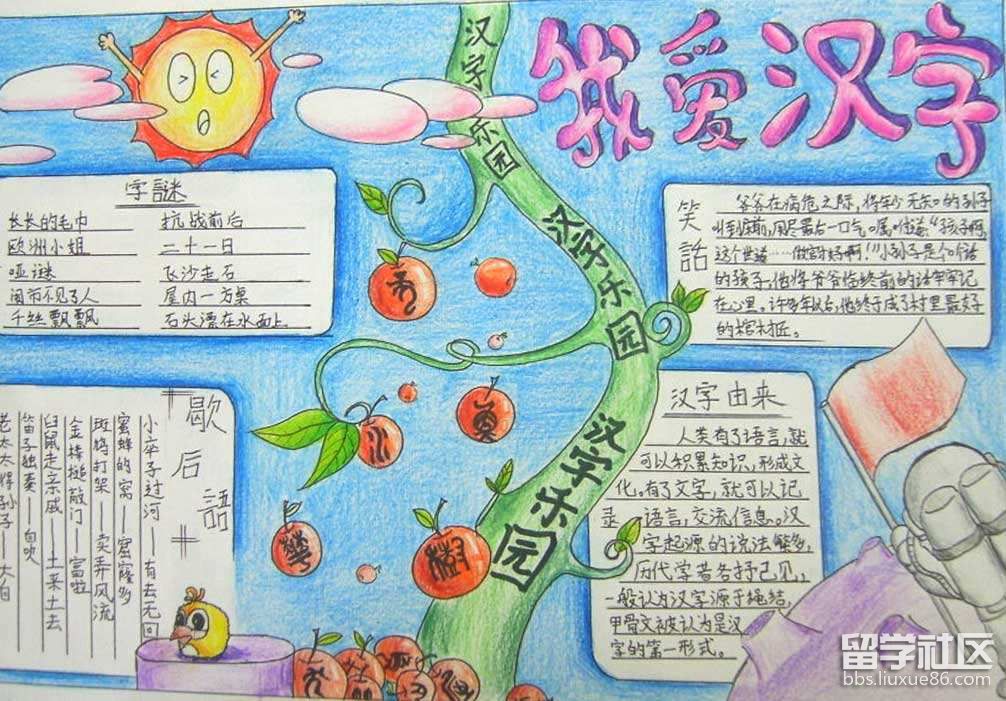 我爱汉字
汉字乐园
汉字乐园
汉字乐园
字謎
长长的毛巾 抗战前后
欧洲小姐 二十一日
哑谜 飞沙走石
闹市不见了人 屋内一方桌
千丝飘飘 石头漂在水面上
笑話
爷爷在病危之际，将年少无知的孙子
叫到床前，用尽最后一口气
这个世道……做討好啊！"小孙子是个
的孩子，他将爷爷临终前的话牢牢记
在心里。许多年以后，他终于成了村里最好
的棺材匠。
歇后語
小卒子过河——有去无回
蜜蜂的窝——窟窿多
斑鸠打架——卖弄风流
金棒槌敲门——富啦
臼鼠走亲戚——土来土去
笛子独奏——自吹
老太太得孙子——大
汉字由来
人类有了语言，就
可以积累知识，形成文
化。有了文字，就可以记
录语言，交流信息。汉
字起源的说法繁多，
历代学者各抒己见，
一般认为汉字源于绳结，
甲骨文被认为是汉
字的第一形式。
莫
樹
留学社区
bbs.liuxue86.com